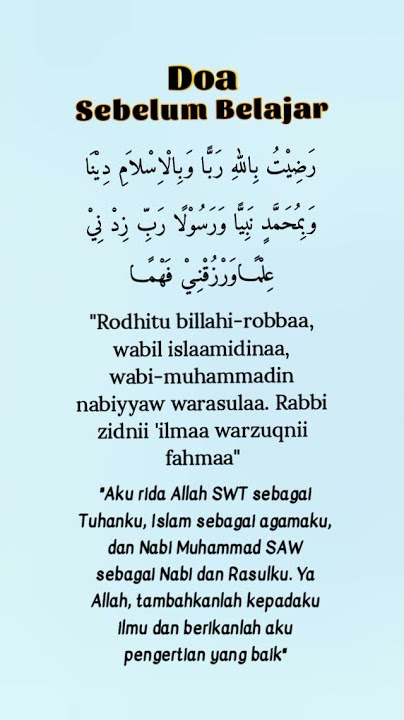 Doa
Sebelum Belajar
رَضِيْتُ بِاللهِ رَبًّا وَبِالْاِسْلاَمِ دِيْنَا
وَبِمُحَمَّدٍ نَبِيًّا وَرَسُوْلًا رَبِّ زِدْ نِيْ
عِلْمًــاوَرْزُقْنِـيْ فَهْمًــا
"Rodhitu billahi-robbaa,
wabil islaamidinaa,
wabi-muhammadin
nabiyyaw warasulaa. Rabbi
zidnii 'ilmaa warzuqnii
fahmaa"
"Aku rida Allah SWT sebagai
Tuhanku, Islam sebagai agamaku,
dan Nabi Muhammad SAW
sebagai Nabi dan Rasulku. Ya
Allah, tambahkanlah kepadaku
ilmu dan berikanlah aku
pengertian yang baik"